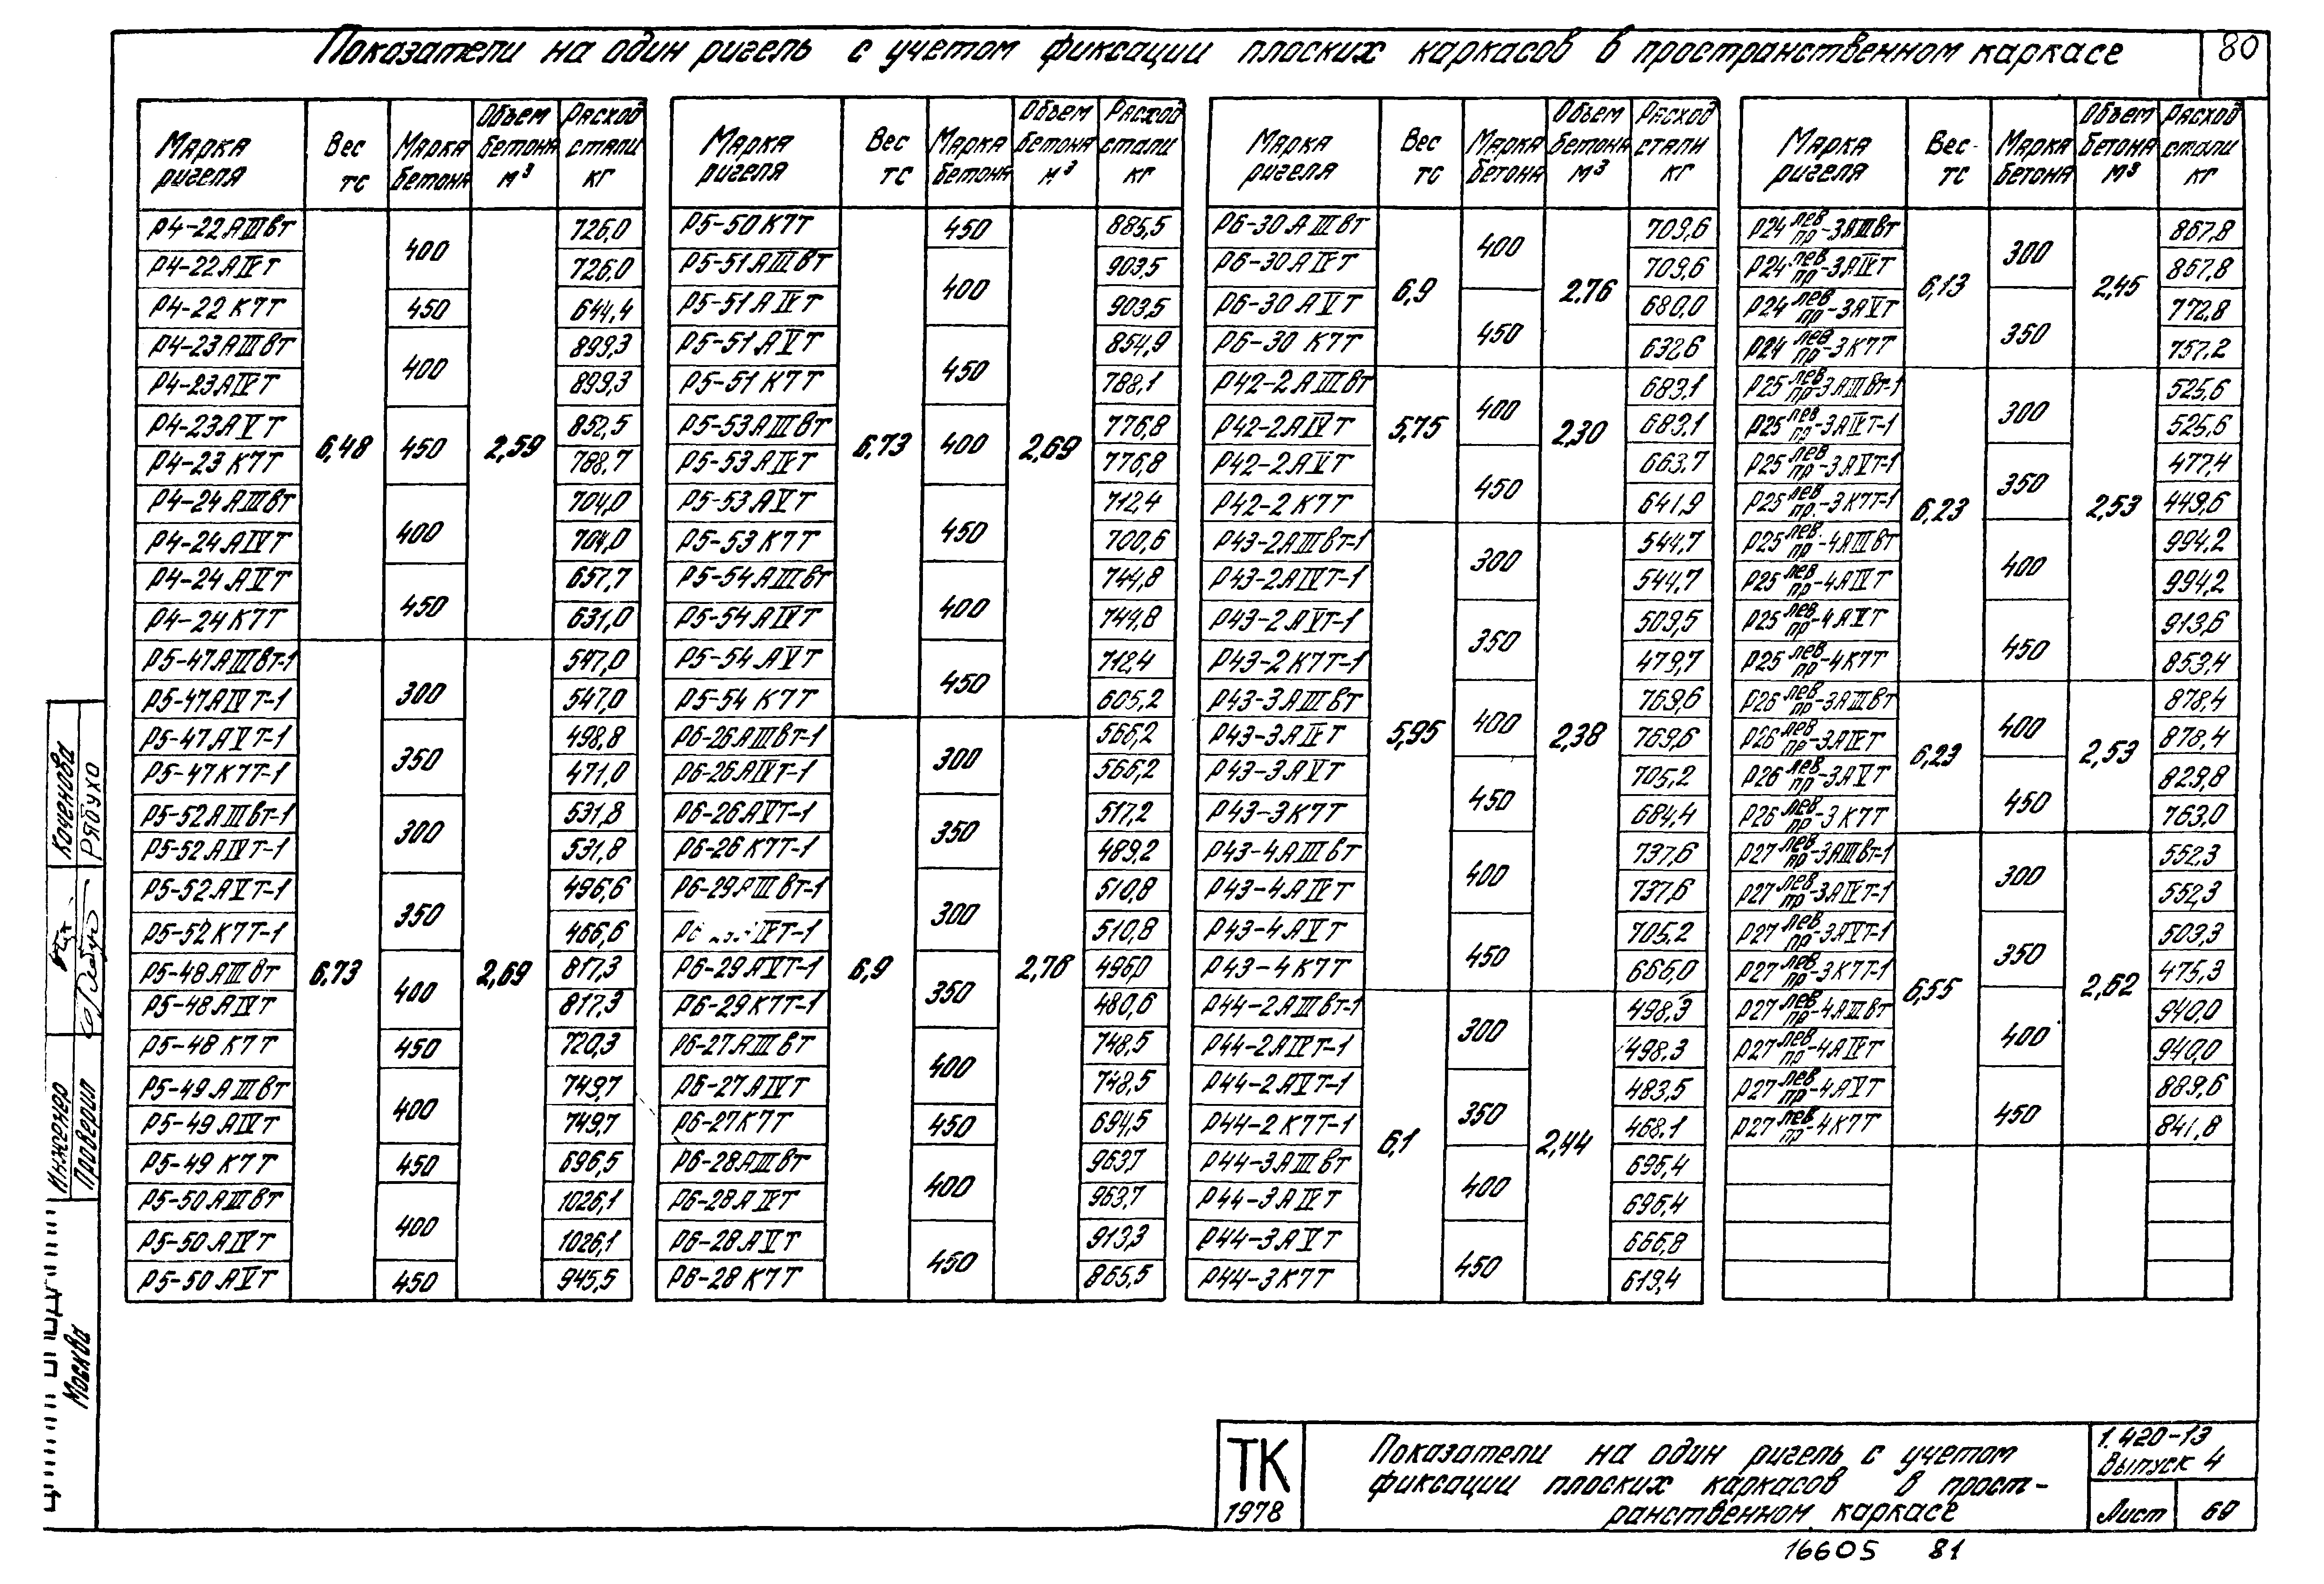 Показатели на один ригель с учетом фиксации плоских каркасов в пространственном каркасе
80
Марка ригеля | Вес тс | Марка бетона | Объем бетона м³ | Расход стали кг
Р4-22АIIIвт | 6,48 | 400 | 2,59 | 726,0
Р4-22АIVт | 726,0
Р4-22К7Т | 450 | 644,4
Р4-23АIIIвт | 400 | 899,3
Р4-23АIVт | 899,3
Р4-23АVт | 450 | 852,5
Р4-23К7Т | 788,7
Р4-24АIIIвт | 400 | 704,0
Р4-24АIVт | 704,0
Р4-24АVт | 450 | 657,7
Р4-24К7Т | 631,0
Р5-47АIIIвт-1 | 6,73 | 300 | 2,69 | 547,0
Р5-47АIVт-1 | 547,0
Р5-47АVт-1 | 350 | 498,8
Р5-47К7Т-1 | 471,0
Р5-52АIIIвт-1 | 300 | 531,8
Р5-52АIVт-1 | 531,8
Р5-52АVт-1 | 350 | 496,6
Р5-52К7Т-1 | 466,6
Р5-48АIIIвт | 400 | 817,3
Р5-48АIVт | 817,3
Р5-48К7Т | 450 | 720,3
Р5-49АIIIвт | 400 | 749,7
Р5-49АIVт | 749,7
Р5-49К7Т | 450 | 696,5
Р5-50АIIIвт | 400 | 1026,1
Р5-50АIVт | 1026,1
Р5-50АVт | 450 | 945,5
Марка ригеля | Вес тс | Марка бетона | Объем бетона м³ | Расход стали кг
Р5-50К7Т | 6,73 | 450 | 2,69 | 885,5
Р5-51АIIIвт | 400 | 903,5
Р5-51АIVт | 903,5
Р5-51АVт | 450 | 854,9
Р5-51К7Т | 788,1
Р5-53АIIIвт | 400 | 776,8
Р5-53АIVт | 776,8
Р5-53АVт | 450 | 712,4
Р5-53К7Т | 700,6
Р5-54АIIIвт | 400 | 744,8
Р5-54АIVт | 744,8
Р5-54АVт | 450 | 712,4
Р5-54К7Т | 605,2
Р6-26АIIIвт-1 | 6,9 | 300 | 2,76 | 566,2
Р6-26АIVт-1 | 566,2
Р6-26АVт-1 | 350 | 517,2
Р6-26К7Т-1 | 489,2
Р6-29АIIIвт-1 | 300 | 510,8
Р6 IVт-1 | 510,8
Р6-29АVт-1 | 350 | 496,0
Р6-29К7Т-1 | 480,6
Р6-27АIIIвт | 400 | 748,5
Р6-27АIVт | 748,5
Р6-27К7Т | 450 | 694,5
Р6-28АIIIвт | 400 | 963,7
Р6-28АIVт | 963,7
Р6-28АVт | 450 | 913,3
Р6-28К7Т | 865,5
Марка ригеля | Вес тс | Марка бетона | Объем бетона м³ | Расход стали кг
Р6-30АIIIвт | 6,9 | 400 | 2.76 | 709,6
Р6-30АIVт | 709,6
Р6-30АVт | 450 | 680,0
Р6-30К7Т | 632,6
Р42-2АIIIвт | 5,75 | 400 | 2,30 | 683,1
Р42-2АIVт | 683,1
Р42-2АVт | 450 | 663,7
Р42-2К7Т | 641,9
Р43-2АIIIвт-1 | 5,95 | 300 | 2,38 | 544,7
Р43-2АIVт-1 | 544,7
Р43-2АVт-1 | 350 | 509,5
Р43-2К7Т-1 | 479,7
Р43-3АIIIвт | 400 | 769,6
Р43-3АIVт | 769,6
Р43-3АVт | 450 | 705,2
Р43-3К7Т | 684,4
Р43-4АIIIвт | 400 | 737,6
Р43-4АIVт | 737,6
Р43-4АVт | 450 | 705,2
Р43-4К7Т | 666,0
Р44-2АIIIвт-1 | 6,1 | 300 | 2,44 | 498,3
Р44-2АIVт-1 | 498,3
Р44-2АVт-1 | 350 | 483,5
Р44-2К7Т-1 | 468,1
Р44-3АIIIвт | 400 | 696,4
Р44-3АIVт | 696,4
Р44-3АVт | 450 | 666,8
Р44-3К7Т | 619,4
Марка ригеля | Вес тс | Марка бетона | Объем бетона м³ | Расход стали кг
Р24 лев пр-3АIIIвт | 6,13 | 300 | 2,45 | 867,8
Р24 лев пр-3АIVт | 867,8
Р24 лев пр-3АVт | 350 | 772,8
Р24 лев пр-3К7Т | 757,2
Р25 лев пр-3АIIIвт-1 | 6,23 | 300 | 2,53 | 525,6
Р25 лев пр-3АIVт-1 | 525,6
Р25 лев пр-3АVт-1 | 350 | 477,4
Р25 лев пр.-3К7Т-1 | 449,6
Р25 лев. пр-4АIIIвт | 400 | 994,2
Р25 лев пр-4АIVт | 994,2
Р25 лев пр-4АVт | 450 | 913,6
Р25 лев пр-4К7Т | 853,4
Р26 лев пр-3АIIIвт | 6,23 | 400 | 2,53 | 878,4
Р26 лев пр-3АIVт | 878,4
Р26 лев пр-3АVт | 450 | 829,8
Р26 лев пр-3К7Т | 763,0
Р27 лев пр-3АIIIвт-1 | 6,55 | 300 | 2,62 | 552,3
Р27 лев пр-3АIVт-1 | 552,3
Р27 лев пр-3АVт-1 | 350 | 503,3
Р27 лев пр-3К7Т-1 | 475,3
Р27 лев пр-4АIIIвт | 400 | 940,0
Р27 лев пр-4АIVт | 940,0
Р27 лев пр-4АVт | 450 | 889,6
Р27 лев пр-4К7Т | 841,8
Инженер Коченова
Проверил Рябухо
Москва
ТК
1978
Показатели на один ригель с учетом
фиксации плоских каркасов в прост-
ранственном каркасе
1.420-13
Выпуск 4
Лист 69
16605 81